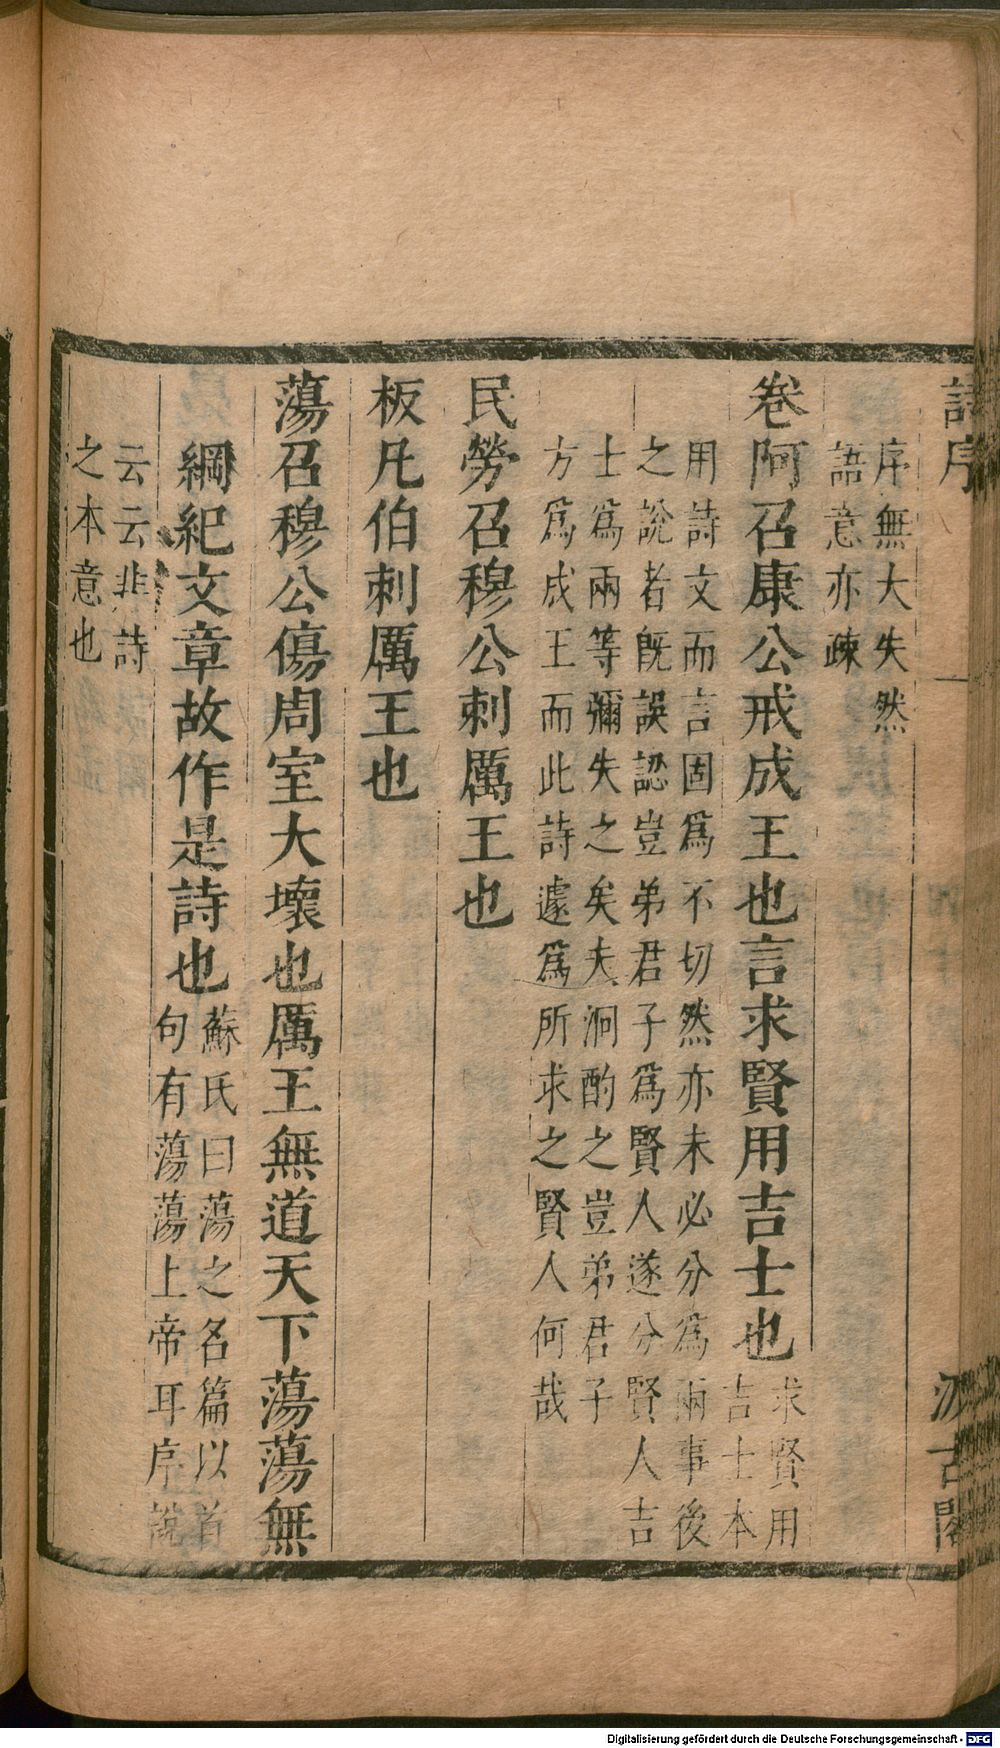 詩序
汲古閣
序無大失然
語意亦疎
卷阿召康公戒成王也言求賢用吉士也求賢用
吉士本
用詩文而言固爲不切然亦未必分爲兩事後
之說者旣誤認豈弟君子爲賢人遂分賢人吉
士爲兩等彌失之矣夫泂酌之豈弟君子
方爲成王而此詩遽爲所求之賢人何哉
民勞召穆公刺厲王也
板凡伯刺厲王也
蕩召穆公傷周室大壞也厲王無道天下蕩蕩無
綱紀文章故作是詩也蘇氏曰蕩之名篇以首
句有蕩蕩上帝耳序說
云云非詩
之本意也
Digitalisierung gefördert durch die Deutsche Forschungsgemeinschaft - DFG